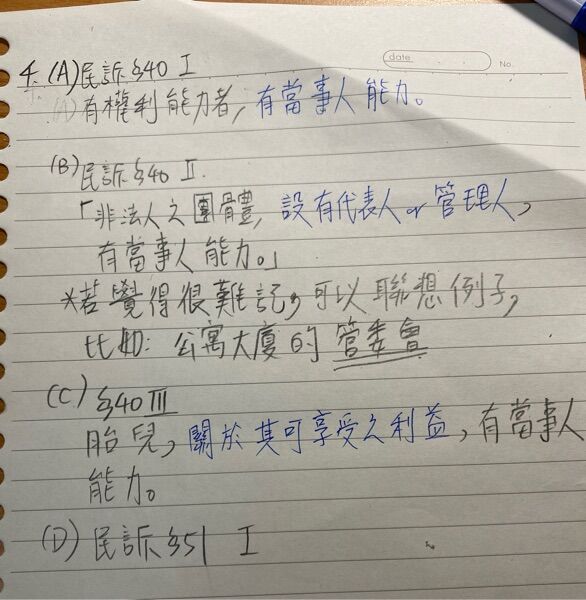 date
No.
4. (A)民訴§40 I
有權利能力者, 有當事人能力。
(B)民訴§40 II.
「非法人之團體, 設有代表人or管理人,
有當事人能力。」
*若覺得很難記, 可以聯想例子,
比如: 公寓大廈的管委會
(C) §40 III
胎兒, 關於其可享受之利益, 有當事人
能力。
(D) 民訴§51 I